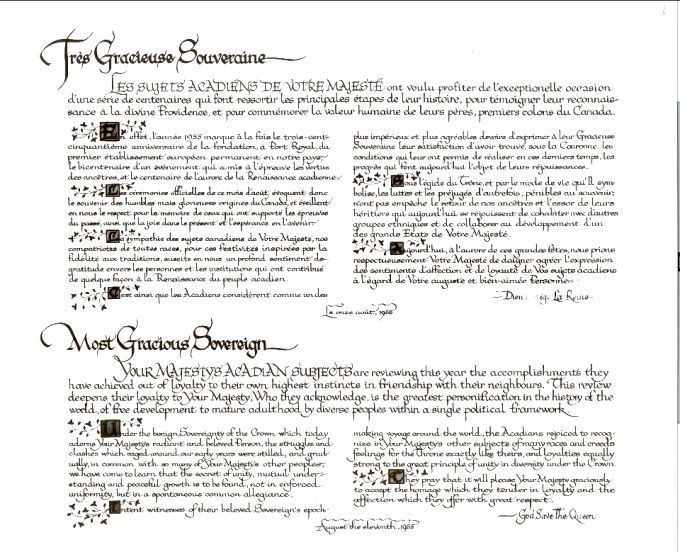 Très Gracieuse Souveraine
LES SUJETS ACADIENS DE VOTRE MAJESTÉ ont voulu profiter de l'exceptionelle occasion
d'une série de centenaires qui font ressortir les principales étapes de leur histoire, pour témoigner leur reconnais-
sance à la divine Providence, et pour commémorer la valeur humaine de leurs pères, premiers colons du Canada.
En effet, l'année 1955 marque à la fois le trois-cent-
cinquantième anniversaire de la fondation, à Port Royal, du
premier établissement européen permanent en notre pays,
le bicentenaire d'un événement qui a mis à l'épreuve les vertus
des ancêtres, et le centenaire de l'aurore de la Renaissance acadienne.
Les cérémonies officielles de ce mois d'août, évoquent donc
le souvenir des humbles mais glorieuses origines du Canada, et éveillent
en nous le respect pour la mémoire de ceux qui ont supporté les épreuves
du passé, ainsi que la joie dans le présent et l'espérance en l'avenir.
La sympathie des sujets canadiens de Votre Majesté, nos
compatriotes de toutes races, pour ces festivités inspirées par la
fidélité aux traditions, suscite en nous un profond sentiment de
gratitude envers les personnes et les institutions qui ont contribué
de quelque façon à la Renaissance du peuple acadien.
C'est ainsi que les Acadiens considèrent comme un des
plus impérieux et plus agréables devoirs d'exprimer à leur Gracieuse
Souveraine leur satisfaction d'avoir trouvé, sous la Couronne, les
conditions qui leur ont permis de réaliser en ces derniers temps, les
progrès qui font aujourd'hui l'objet de leurs réjouissances.
Sous l'égide du Trône, et par le mode de vie qu'Il sym-
bolise, les luttes et les préjugés d'autrefois, pénibles au souvenir,
n'ont pas empêché le retour de nos ancêtres et l'essor de leurs
héritiers qui aujourd'hui se réjouissent de cohabiter avec d'autres
groupes ethniques et de collaborer au développement d'un
des grands États de Votre Majesté.
Aujourd'hui, à l'aurore de ces grandes fêtes, nous prions
respectueusement Votre Majesté de daigner agréer l'expression
des sentiments d'affection et de loyauté de Vos sujets acadiens
à l'égard de Votre auguste et bien-aimée Personne.
Dieu La Reine
Le onze août, 1955
Most Gracious Sovereign
YOUR MAJESTY'S ACADIAN SUBJECTS are reviewing this year the accomplishments they
have achieved out of loyalty to their own highest instincts in friendship with their neighbours. This review
deepens their loyalty to Your Majesty, Who they acknowledge, is the greatest personification in the history of the
world, of free development to mature adulthood by diverse peoples within a single political framework.
Under the benign Sovereignty of the Crown which today
adorns Your Majesty's radiant and beloved Person, the struggles and
clashes which raged around our early years were stilled, and grad-
ually, in common with so many of Your Majesty's other peoples,
we have come to learn that the secret of unity, mutual under-
standing and peaceful growth is to be found, not in enforced
uniformity, but in a spontaneous common allegiance.
Intent witnesses of their beloved Sovereign's epoch-
making voyage around the world, the Acadians rejoiced to recog-
nise in Your Majesty's other subjects of many races and creeds
feelings for the Throne exactly like theirs, and loyalties equally
strong to the great principle of unity in diversity under the Crown.
They pray that it will please Your Majesty graciously
to accept the homage which they tender in loyalty and the
affection which they offer with great respect.
God Save The Queen
August the eleventh, 1955